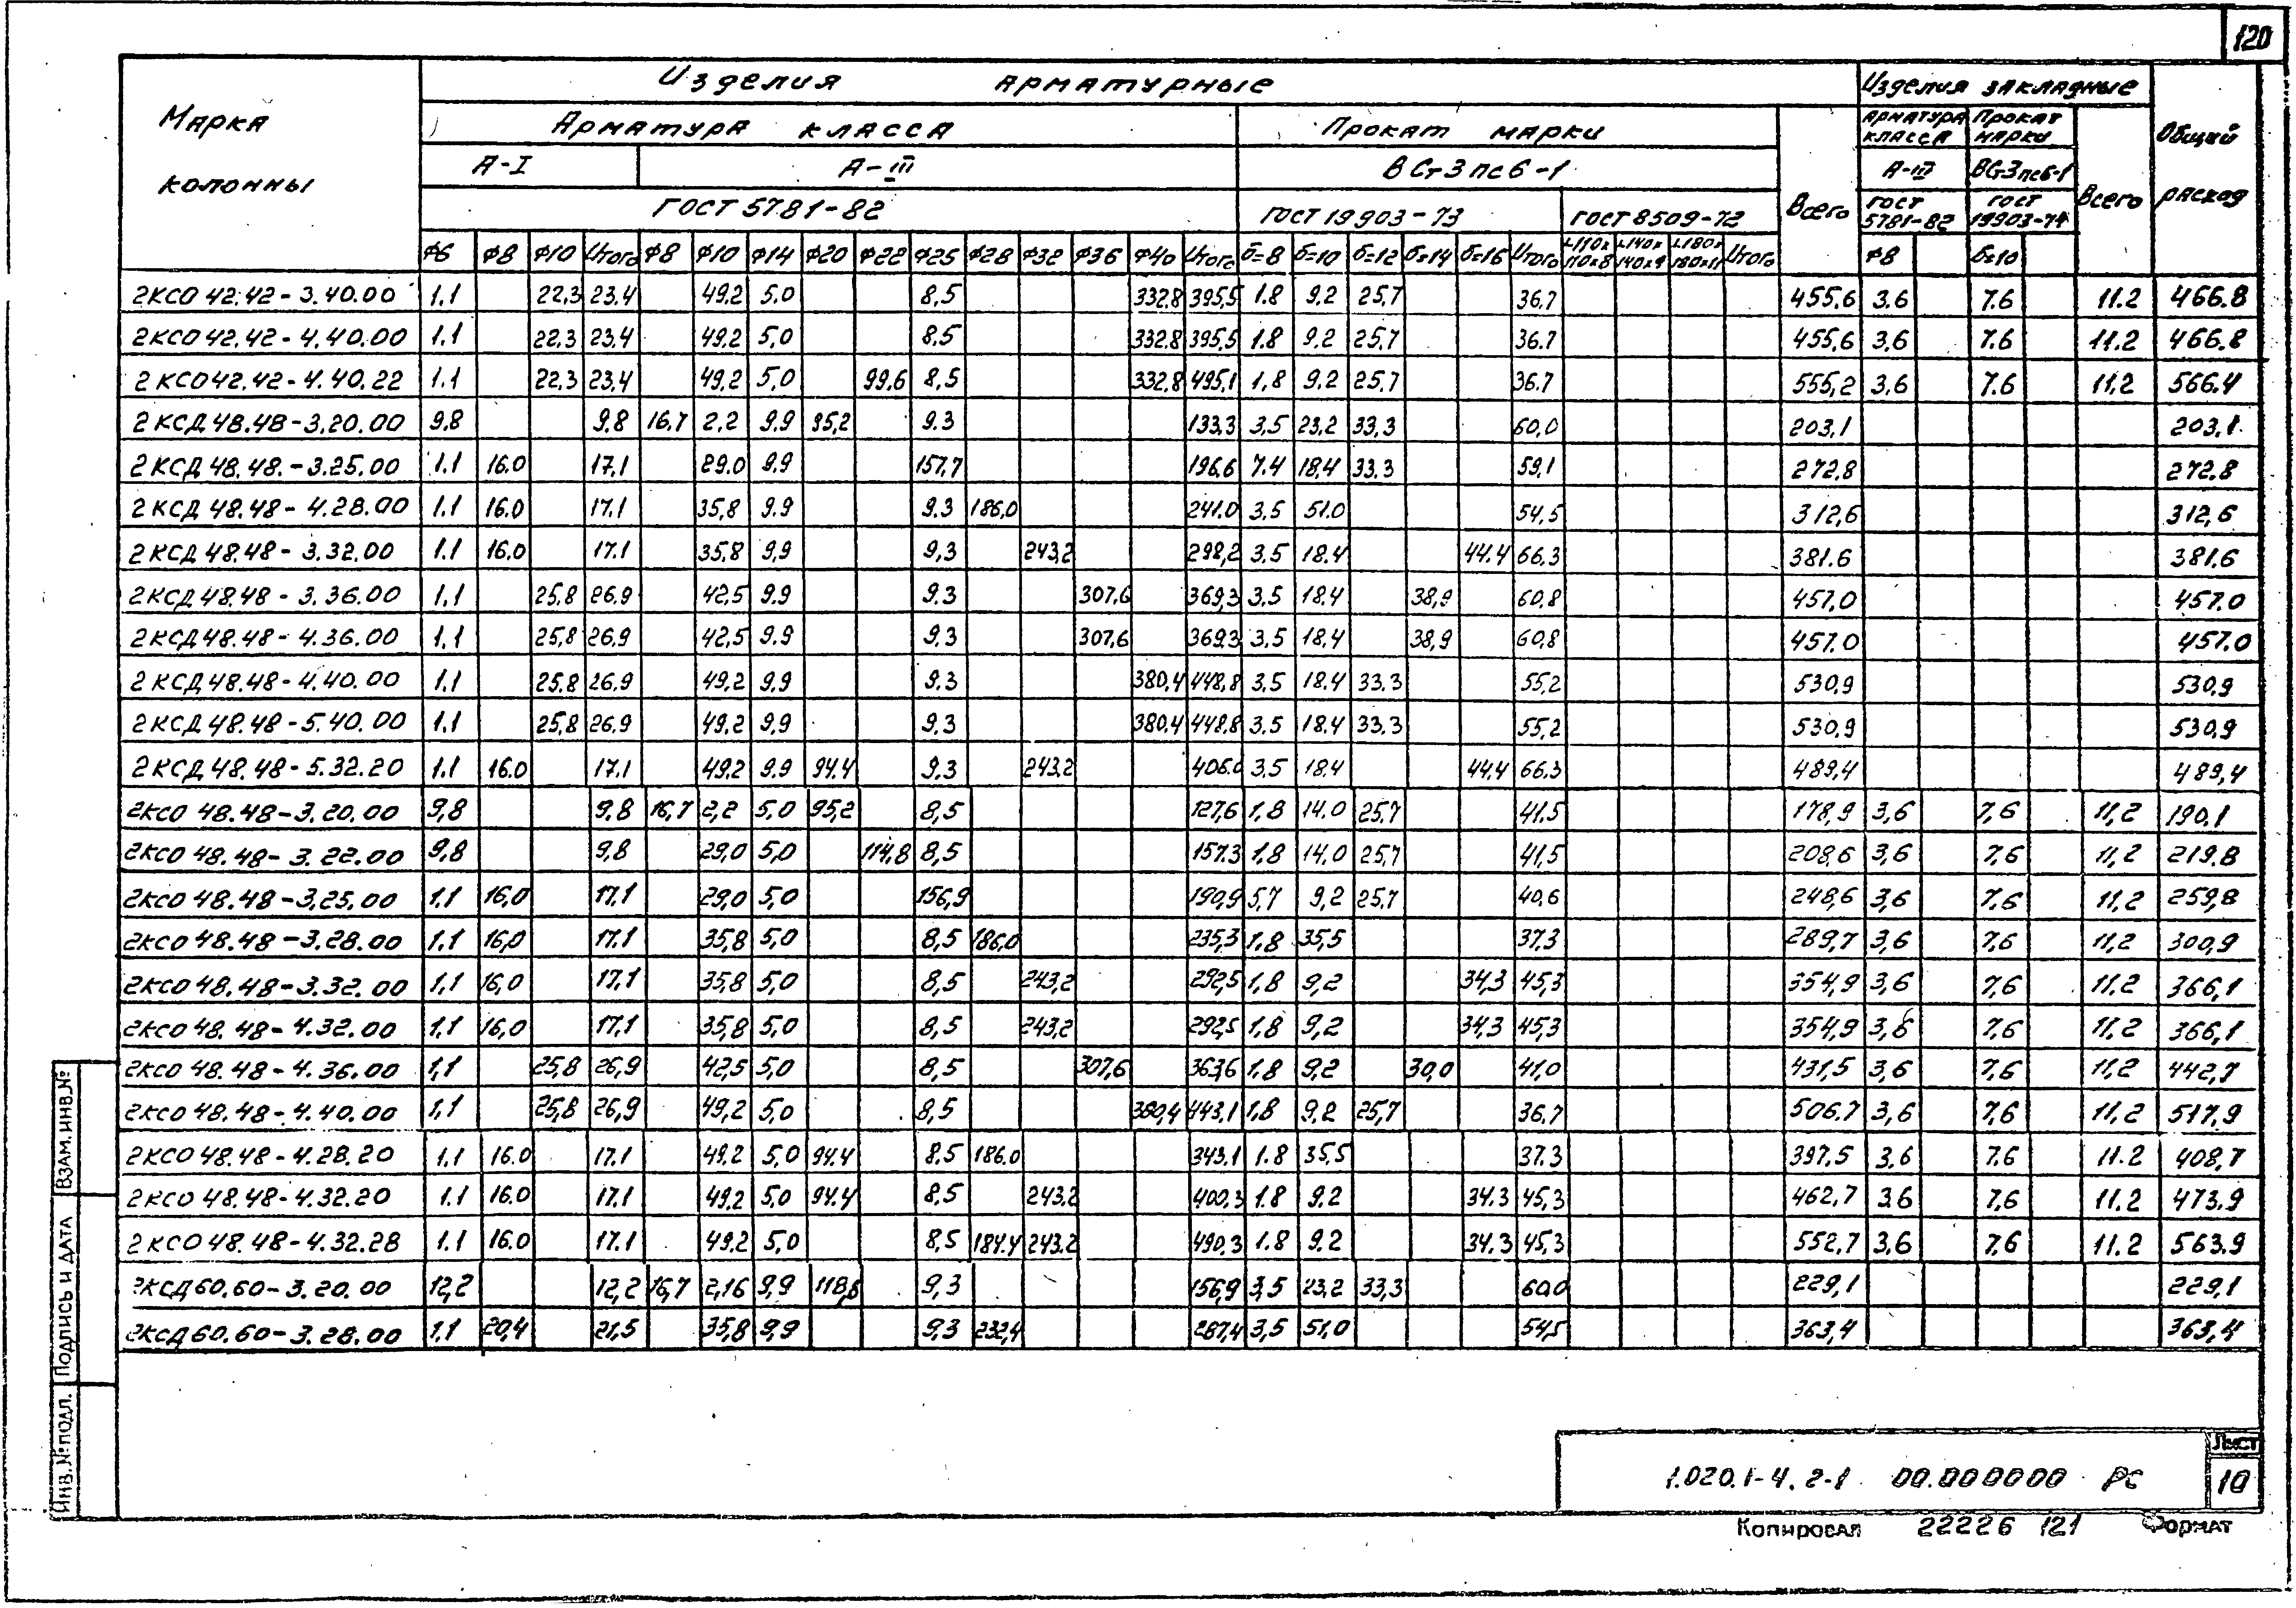 120
Марка колонны
Изделия арматурные
Изделия закладные
Общий расход
Арматура класса
Прокат марки
Всего
Арматура класса
Прокат марки
Всего
А-I
А-III
ВСт3пс6-1
А-III
ВСт3пс6-1
ГОСТ 5781-82
ГОСТ 19903-73
ГОСТ 8509-72
ГОСТ 5781-82
ГОСТ 19903-74
Ф6 Ф8 Ф10 Итого Ф8 Ф10 Ф14 Ф20 Ф22 Ф25 Ф28 Ф32 Ф36 Ф40 Итого б=8 б=10 б=12 б=14 б=16 Итого L110х110х8 L140х140х9 L180х180х11 Итого Ф8 б=10
2КСО 42.42-3.40.00 1.1 22,3 23,4 49,2 5.0 8,5 332,8 395,5 1.8 9.2 25,7 36.7 455.6 3.6 7.6 11.2 466.8
2КСО 42.42-4.40.00 1.1 22.3 23.4 49,2 5,0 8,5 332.8 395,5 1.8 9.2 25,7 36.7 455,6 3,6 7.6 11.2 466.8
2КСО 42.42-4.40.22 1.1 22,3 23,4 49,2 5,0 99,6 8,5 332,8 495,1 1,8 9,2 25,7 36.7 555,2 3,6 7.6 11,2 566.4
2КСД 48.48-3.20.00 9.8 9.8 16.7 2,2 9.9 95,2 9.3 133,3 3,5 23,2 33,3 60,0 203,1 203,1
2КСД 48.48.-3.25.00 1.1 16.0 17.1 29.0 9.9 157.7 196.6 7.4 18.4 33.3 59,1 272,8 272,8
2КСД 48.48-4.28.00 1.1 16.0 17.1 35,8 9.9 9.3 186,0 241.0 3,5 51.0 54,5 312,6 312,6
2КСД 48.48-3.32.00 1.1 16.0 17.1 35,8 9,9 9,3 243,2 298,2 3,5 18.4 44.4 66.3 381.6 381.6
2КСД 48.48-3.36.00 1,1 25.8 26.9 42,5 9.9 9.3 307,6 369,3 3,5 18.4 38,9 60,8 457,0 457.0
2КСД 48.48-4.36.00 1,1 25,8 26,9 42,5 9.9 9.3 307,6 369,3 3,5 18.4 38,9 60,8 457.0 457.0
2КСД 48.48-4.40.00 1.1 25.8 26.9 49,2 9,9 9.3 380,4 448,8 3,5 18.4 33.3 55,2 530,9 530,9
2КСД 48.48-5.40.00 1.1 25,8 26.9 49,2 9.9 9.3 380,4 448,8 3,5 18.4 33.3 55,2 530,9 530,9
2КСД 48.48-5.32.20 1.1 16.0 17.1 49,2 9.9 94.4 9.3 243.2 406.0 3,5 18.4 44.4 66.3 489,4 489,4
2КСО 48.48-3.20.00 9,8 9.8 16,7 2,2 5,0 95,2 8,5 127,6 1,8 14.0 25,7 41,5 178,9 3,6 7,6 11,2 190,1
2КСО 48.48-3.22.00 9,8 9,8 29,0 5,0 114,8 8,5 157,3 1,8 14,0 25,7 41,5 208,6 3,6 7,6 11,2 219.8
2КСО 48.48-3,25.00 1.1 16,0 17.1 29,0 5,0 156,9 190,9 5,7 9,2 25,7 40,6 248,6 3,6 7.6 11,2 259,8
2КСО 48.48-3.28.00 1.1 16,0 17.1 35,8 5,0 8,5 186,0 235,3 1.8 35,5 37,3 289,7 3,6 7,6 11,2 300,9
2КСО 48.48-3.32.00 1,1 16,0 17,1 35,8 5,0 8,5 243,2 292,5 1,8 9,2 34,3 45,3 354,9 3,6 7,6 11,2 366,1
2КСО 48.48-4.32.00 1.1 16,0 17,1 35,8 5,0 8,5 243,2 292,5 1,8 9,2 34,3 45,3 354,9 3,6 7,6 11,2 366,1
2КСО 48.48-4.36.00 1,1 25,8 26,9 42,5 5,0 8,5 307,6 363,6 1,8 9,2 30,0 41,0 431,5 3,6 7,6 11,2 442,7
2КСО 48.48-4.40.00 1,1 25,8 26,9 49,2 5,0 8,5 380,4 443,1 1,8 9,2 25,7 36,7 506,7 3,6 7,6 11,2 517,9
2КСО 48.48-4.28.20 1.1 16.0 17.1 49,2 5,0 94.4 8.5 186.0 343,1 1.8 35,5 37.3 397,5 3,6 7.6 11.2 408,7
2КСО 48.48-4.32.20 1.1 16.0 17.1 49,2 5,0 94,4 8,5 243.2 400,3 1.8 9.2 34.3 45,3 462,7 3.6 7,6 11.2 473.9
2КСО 48.48-4.32.28 1.1 16.0 17.1 49,2 5,0 8,5 184.4 243.2 490,3 1.8 9.2 34.3 45,3 552,7 3,6 7,6 11.2 563.9
2КСД 60.60-3.20.00 12,2 12,2 16,7 2,16 9,9 118,8 9,3 156,9 3,5 23,2 33,3 60,0 229,1 229,1
2КСД 60.60-3.28.00 1,1 20,4 21,5 35,8 9,9 9,3 232,4 287,4 3,5 51,0 54,5 363,4 363,4
Инв. № подл. Подпись и дата Взам. инв. №
1.020.1-4. 2-1 00.000000 РС
Лист
10
Копировал 22226 121 Формат